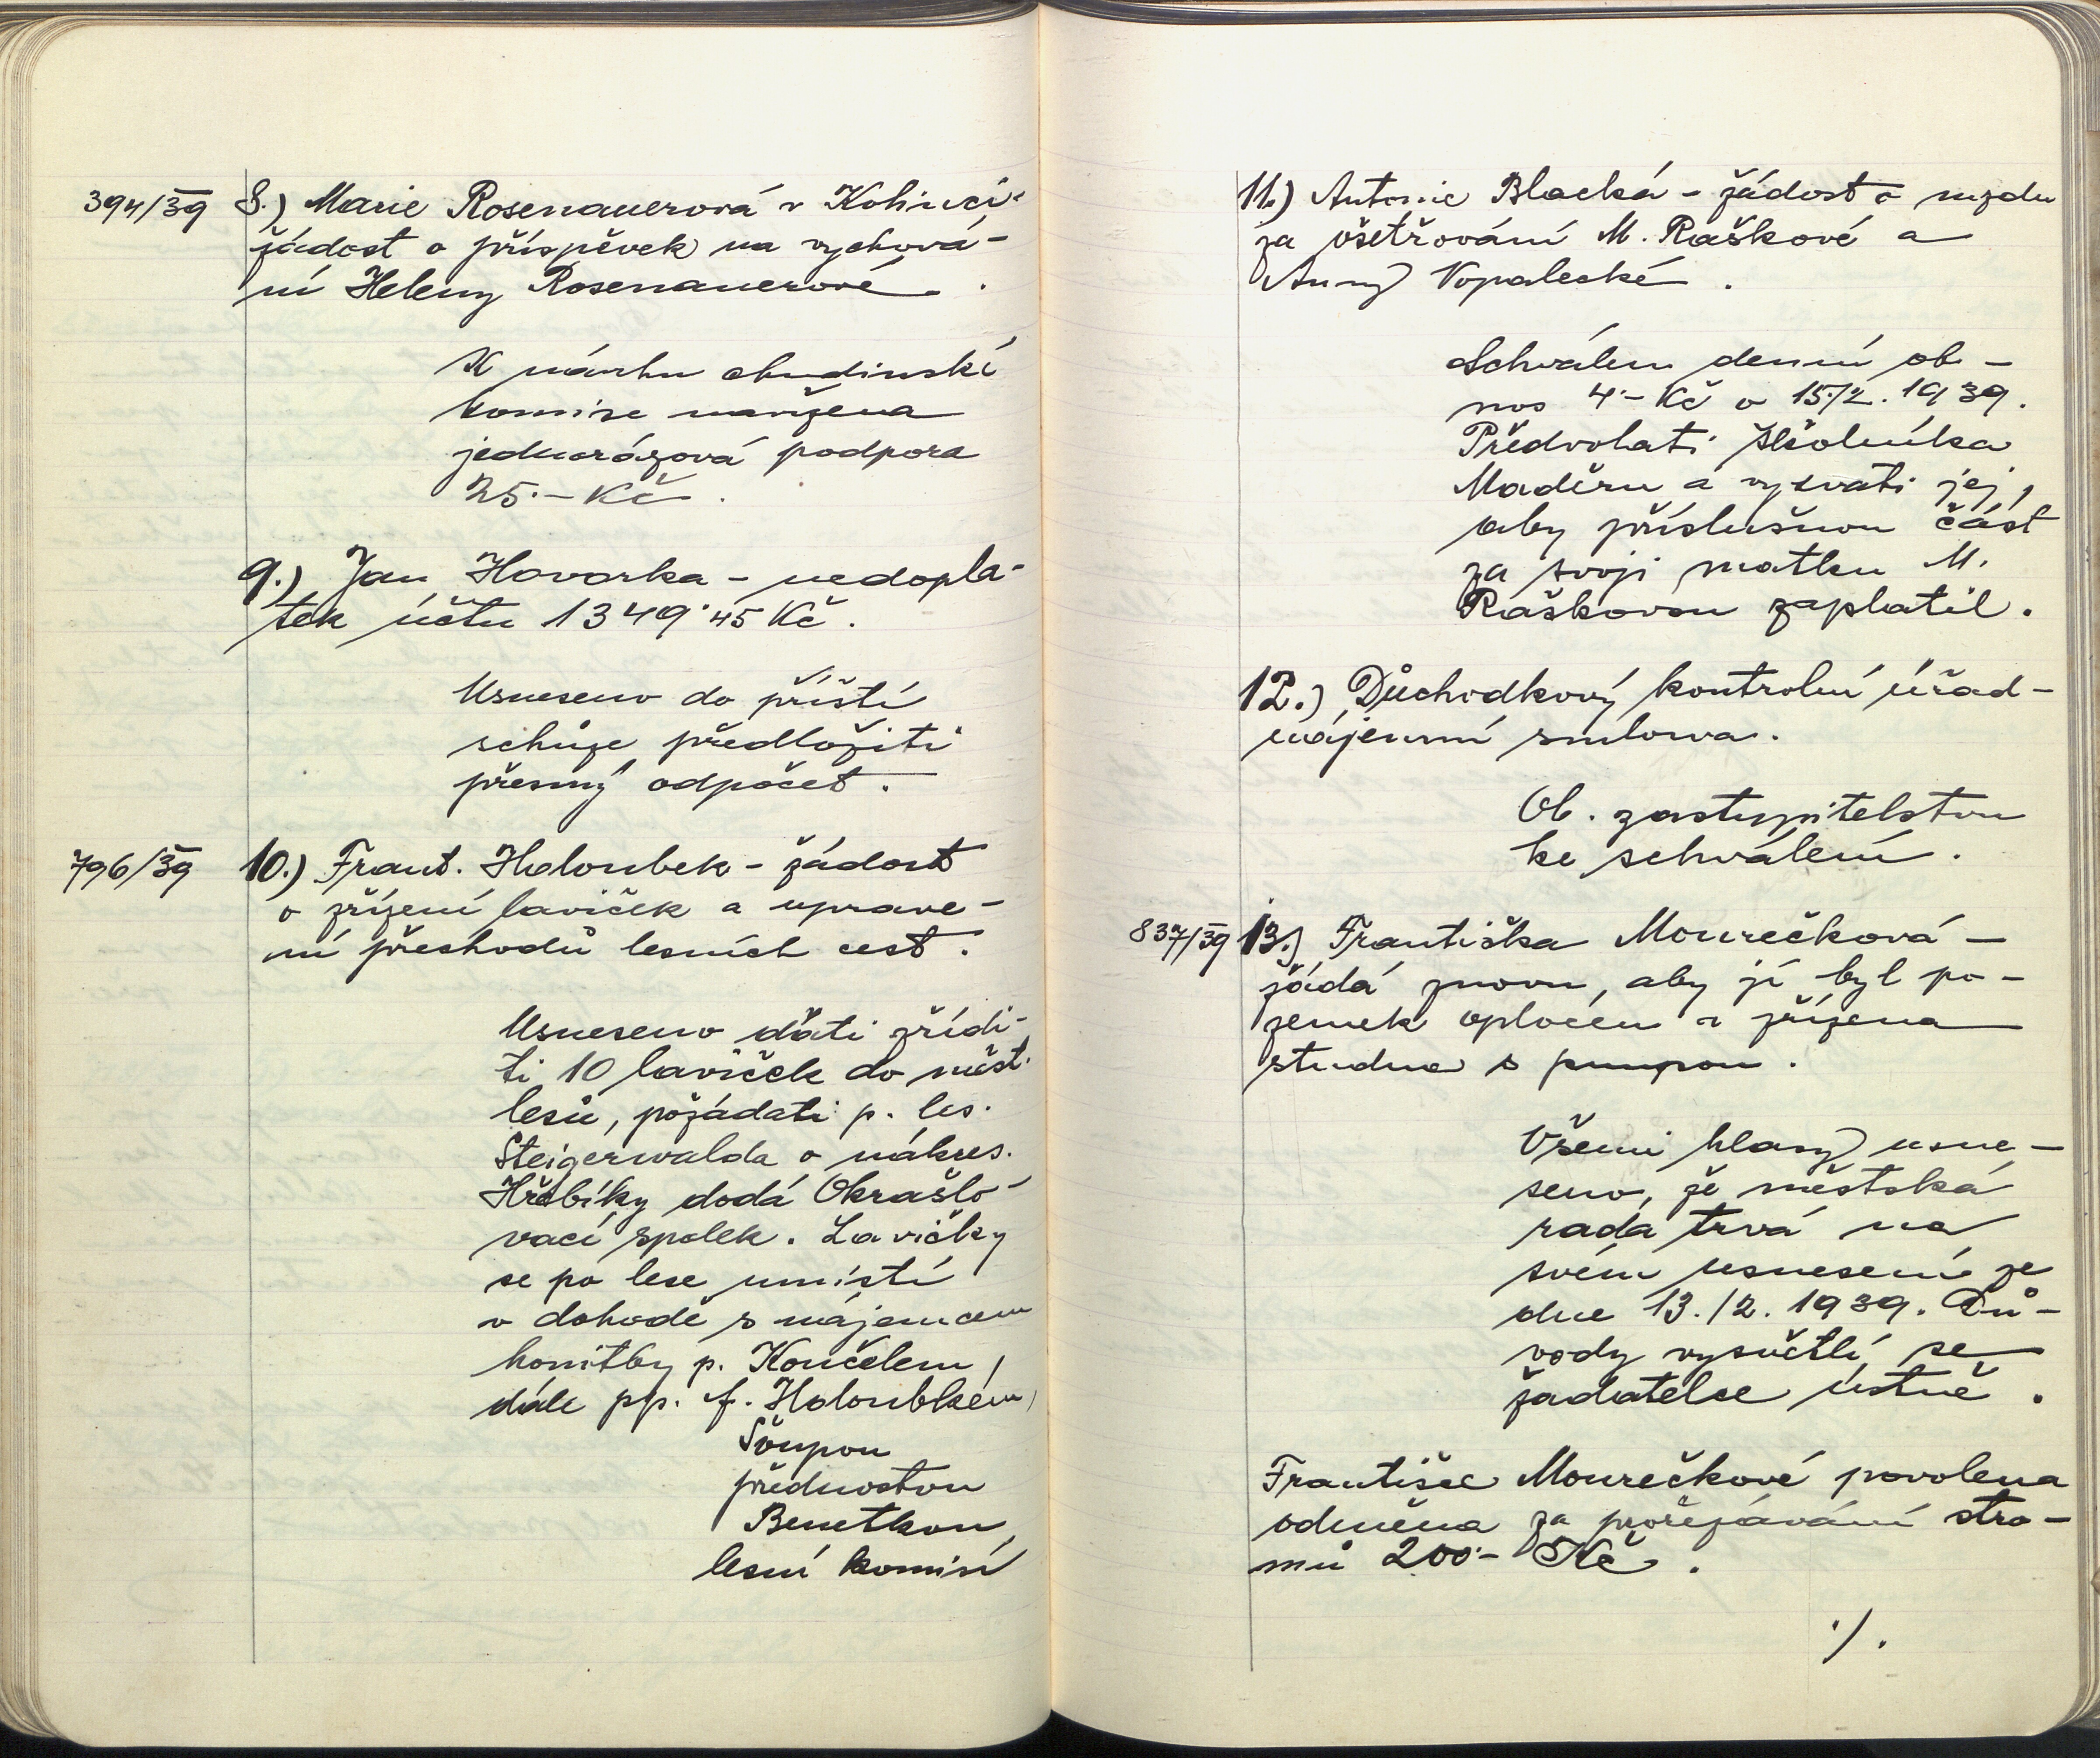 394/39 8.) Marie Rosenauerová v Kolinci -
žádost o příspěvek na vychová-
ní Heleny Rosenauerové .
K návrhu chudinské
komise navržena
jednorázová podpora
25.- Kč .
9.) Jan Hovorka - nedopla-
tek účtu 1349˙45 Kč .
Usneseno do příští
schůze předložiti
přesný odpočet .
796/39 10.) Frant. Holoubek - žádost
o zřízení laviček a uprave-
ní přechodů lesních cest .
Usneseno dáti zřídi-
ti 10 laviček do měst.
lesů, požádati p. les.
Steigerwalda o nákres.
Hřebíky dodá Okrašlo-
vací spolek . Lavičky
se po lese umístí
v dohodě s nájemcem
honitby p. Koučelem ,
dále pp. f. Holoubkem ,
Šoupou
přednostou
Benetkou ,
lesní komisí
11.) Antonie Blacká - žádost o mzdu
za ošetřování M. Raškové a
Anny Vopalecké .
Schválen denní ob-
nos 4.- Kč o 15./2. 1939.
Předvolati školníka
Maděru a vyzvati jej,
aby příslušnou část
za svoji matku M.
Raškovou zaplatil .
12.) Důchodkový kontrolní úřad -
nájemní smlouva .
Ob. zastupitelstvu
ke schválení .
837/39 13.) Františka Mourečková -
žádá znovu, aby jí byl po-
zemek oplocen a zřízena
studna s pumpou .
Všemi hlasy usne-
seno, že městská
rada trvá na
svém usnesení ze
dne 13./2. 1939. Dů-
vody vysvětlí se
žadatelce ústně .
Františce Mourečkové povolena
odměna za prořezávání stro-
mů 200.- Kč .
./.